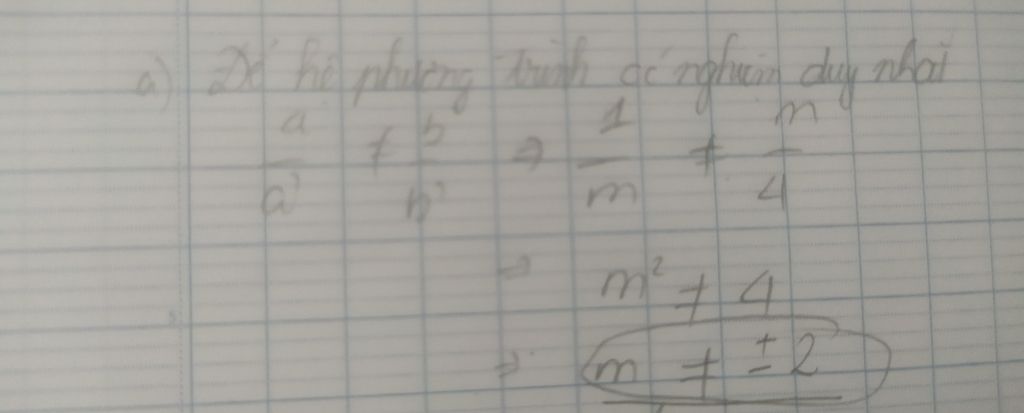 a) Để hệ phương trình có nghiệm duy nhất
a/a' ≠ b/b' ⇒ 1/m ≠ m/4
⇒ m² ≠ 4
⇒ m ≠ ±2